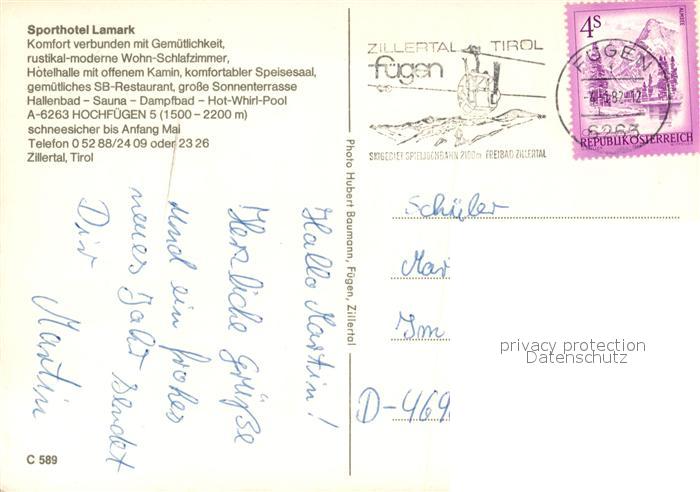 Sporthotel Lamark
Komfort verbunden mit Gemütlichkeit,
rustikal-moderne Wohn-Schlafzimmer,
Hotelhalle mit offenem Kamin, komfortabler Speisesaal,
gemütliches SB-Restaurant, große Sonnenterrasse
Hallenbad – Sauna – Dampfbad – Hot-Whirl-Pool
A-6263 HOCHFÜGEN 5 (1500 – 2200 m)
schneesicher bis Anfang Mai
Telefon 0 52 88/24 09 oder 23 26
Zillertal, Tirol
Hallo Martin!
Herzliche Grüße
und ein frohes
neues Jahr sendet
Dir
Martin
C 589
Photo Hubert Baumann, Fügen, Zillertal
ZILLERTAL TIROL
fügen
SKIGEBIET SPIELJOCHBAHN 2100m FREIBAD ZILLERTAL
4S
ALMSEE
REPUBLIK ÖSTERREICH
FÜGEN
82-12
6263
Schüler
Mar
Im
D-469
privacy protection
Datenschutz